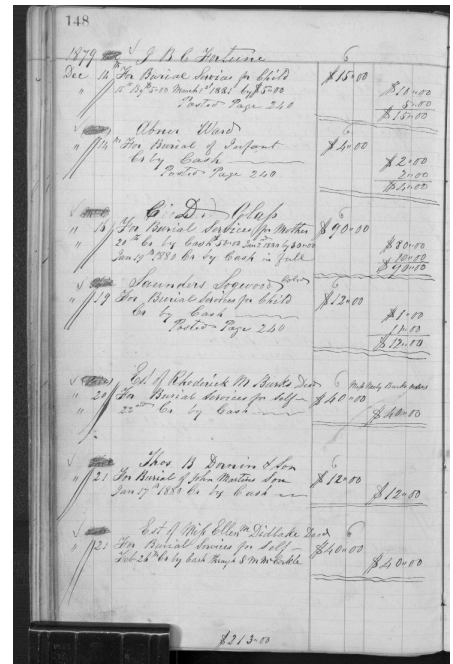 148
1879 J B C Fortune 6
Dec 14th For Burial Services for Child $15.00
15th By $5.00 March 1st 1881 by $5.00 $10.00
Posted Page 240 5.00
$15.00
Abner Ward 6
" 14th For Burial of Infant $4.00
Cr by Cash $2.00
Posted Page 240 2.00
$4.00
C. D. Glass 6
" 18 For Burial Services for Mother $90.00
20th Cr by Cash $80.00
Jan 19th 1880 Cr by Cash in full 10.00
$90.00
Saunders Logwood Cold 6
" 19 For Burial Services for Child $12.00
Cr by Cash $1.00
Posted Page 240 11.00
$12.00
Est of Rhoderick M Burks Decd 6
" 20 For Burial Services for Self $40.00
" 22nd Cr by Cash $40.00
Thos B Dornin & Son 6
" 21 For Burial of John Martins Son $12.00
Jan 17th 1880 Cr by Cash $12.00
Est of Miss Ellen M Didlake Decd 6
" 21 For Burial Services for Self $40.00
Feb 26th Cr by Cash Through S M McCorkle $40.00
$213.00